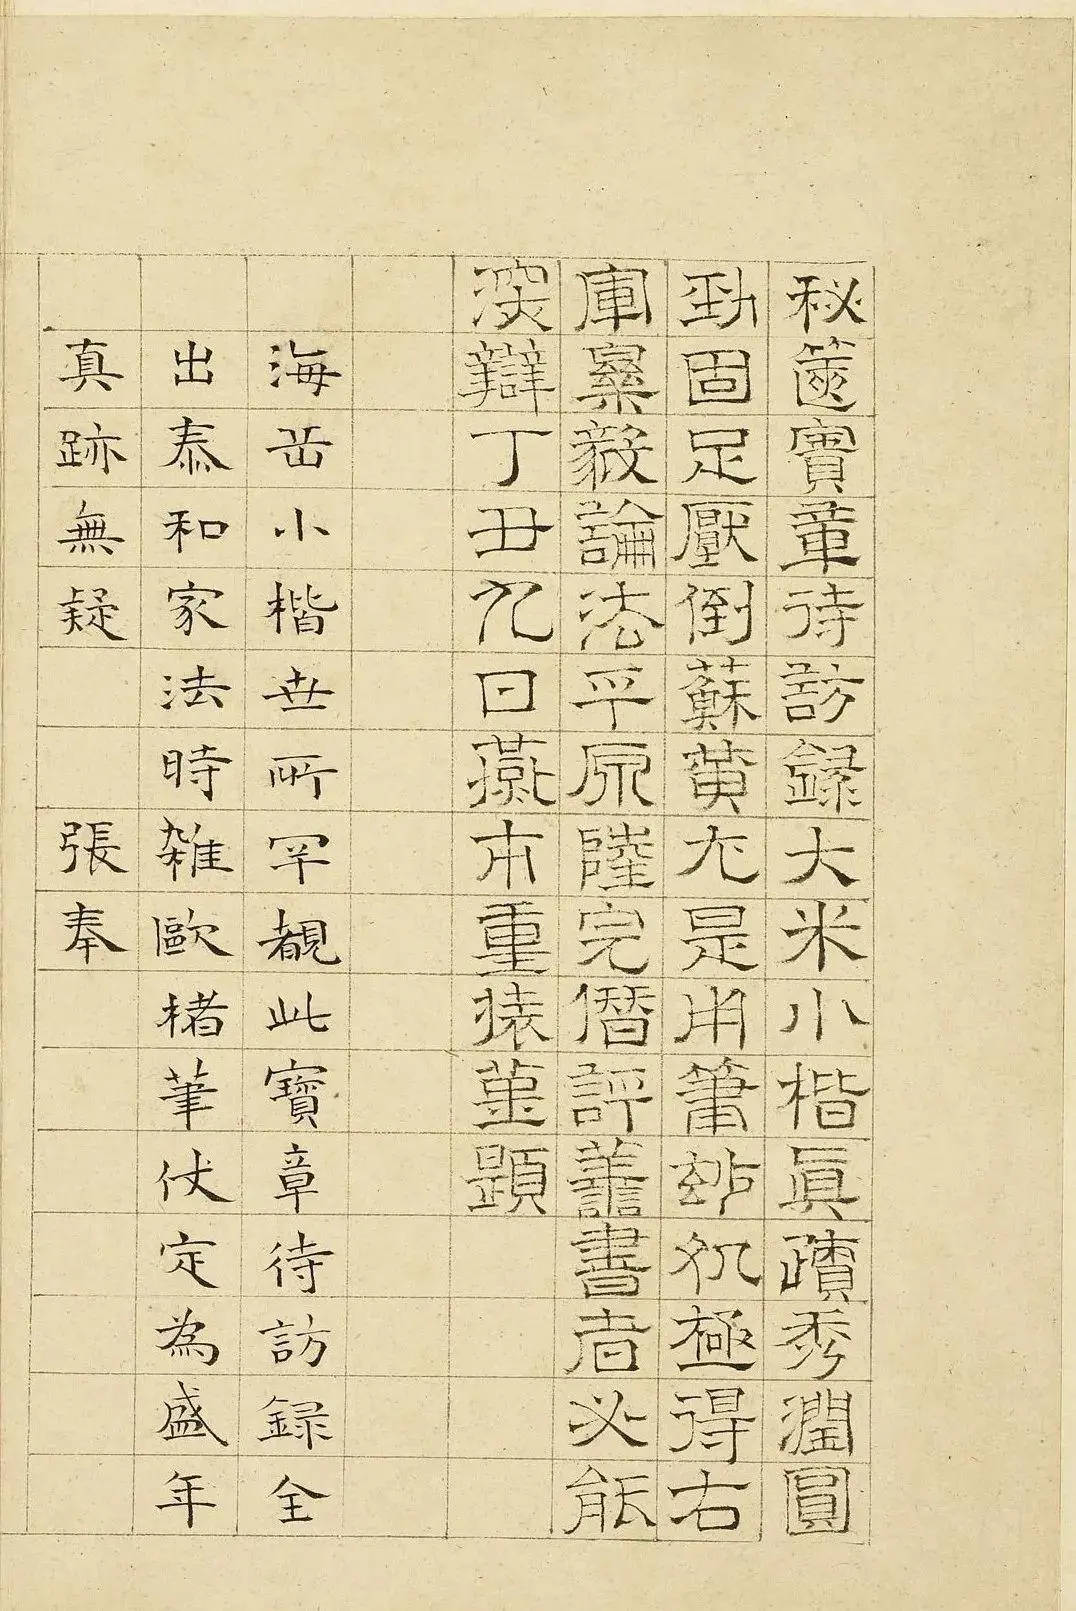 秘篋實章待訪録大米小楷眞蹟秀潤圓
勁固足壓倒蘇黄尤是用筆玅処極得右
軍樂毅論法平原陸完僭評善書者必能
深辯丁丑九日燕市重題
海岳小楷世所罕覩此寶章待訪録全
出泰和家法時雜歐褚筆伏定為盛年
真跡無疑 張奉